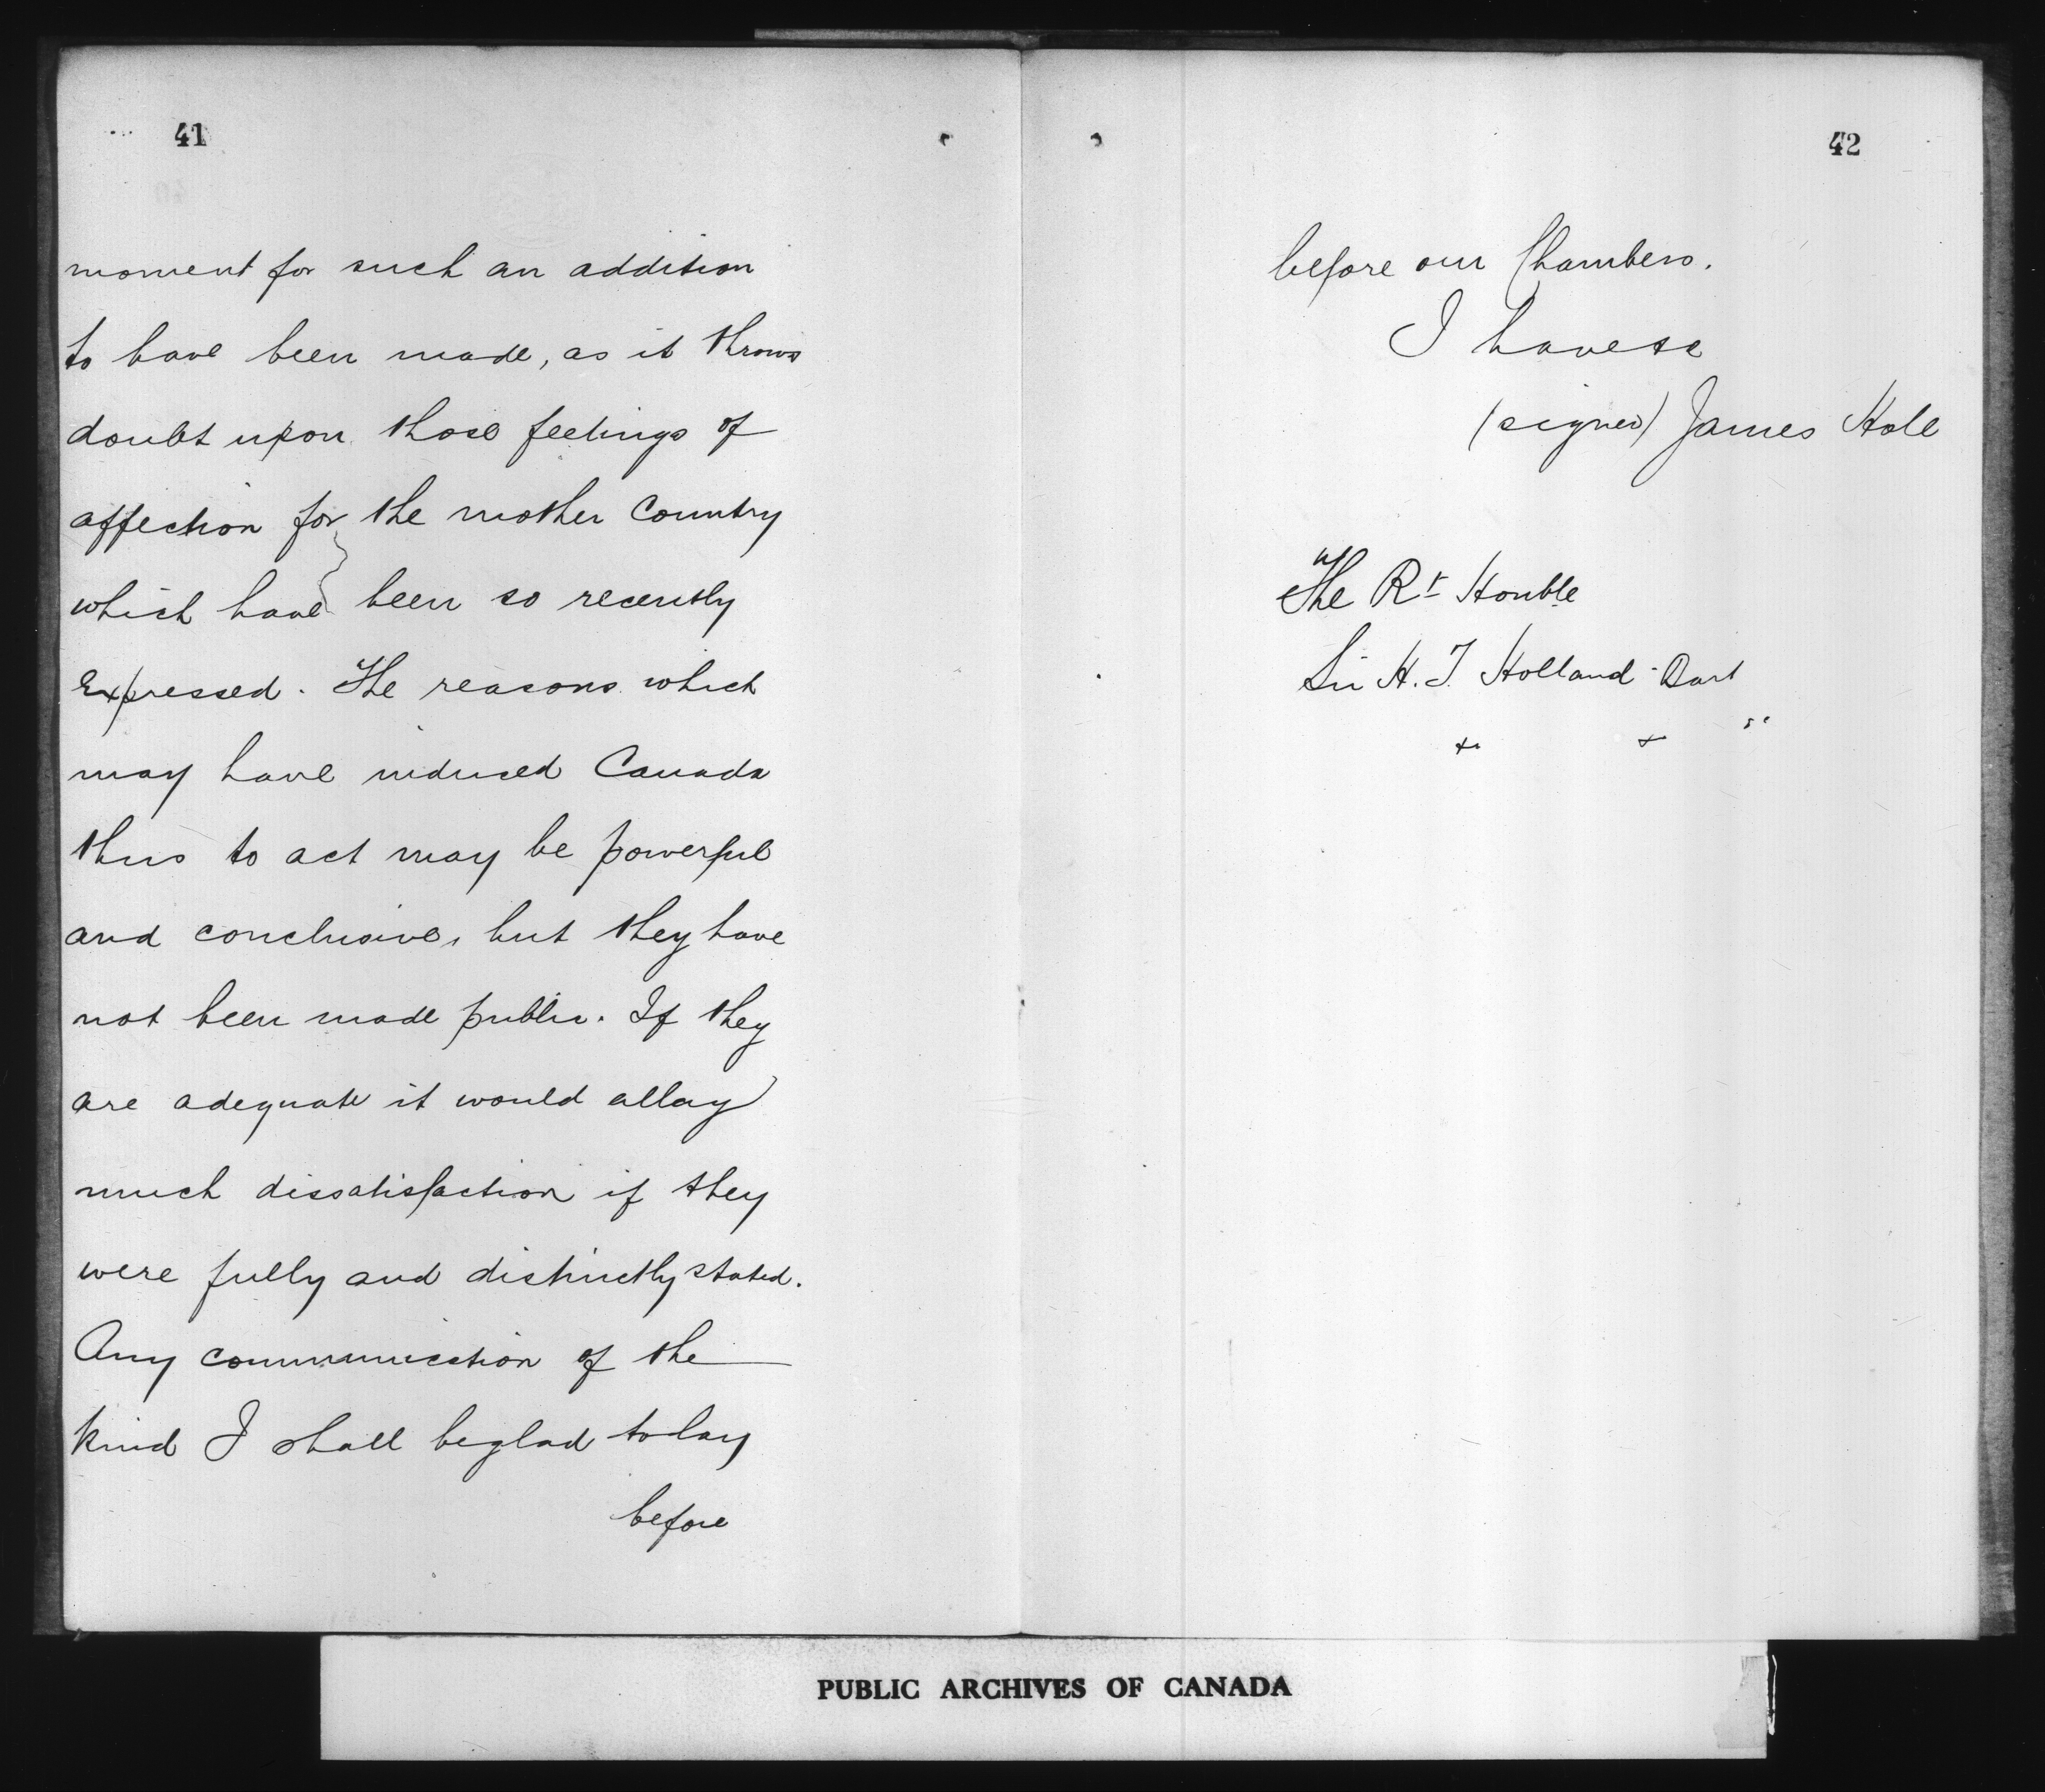 41
moment for such an addition
to have been made, as it throws
doubt upon those feelings of
affection for the mother Country
which have been so recently
Expressed. The reasons which
may have induced Canada
thus to act may be powerful
and conclusive, but they have
not been made public. If they
are adequate it would allay
much dissatisfaction if they
were fully and distinctly stated.
Any communication of the
kind I shall be glad to lay
before
42
before our Chambers.
I have &c
(signed) James Hole
The Rt Honble
Sir H. T. Holland Bart
PUBLIC ARCHIVES OF CANADA